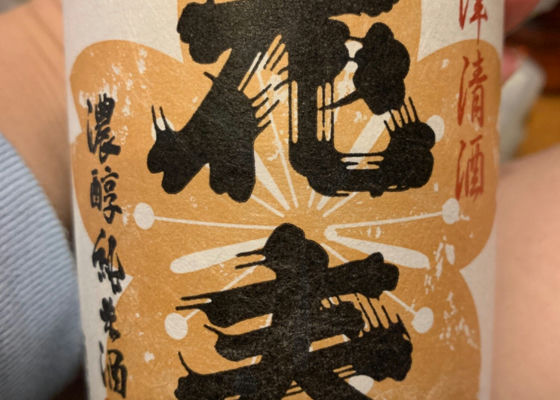 津清酒
花春
濃醇純米酒